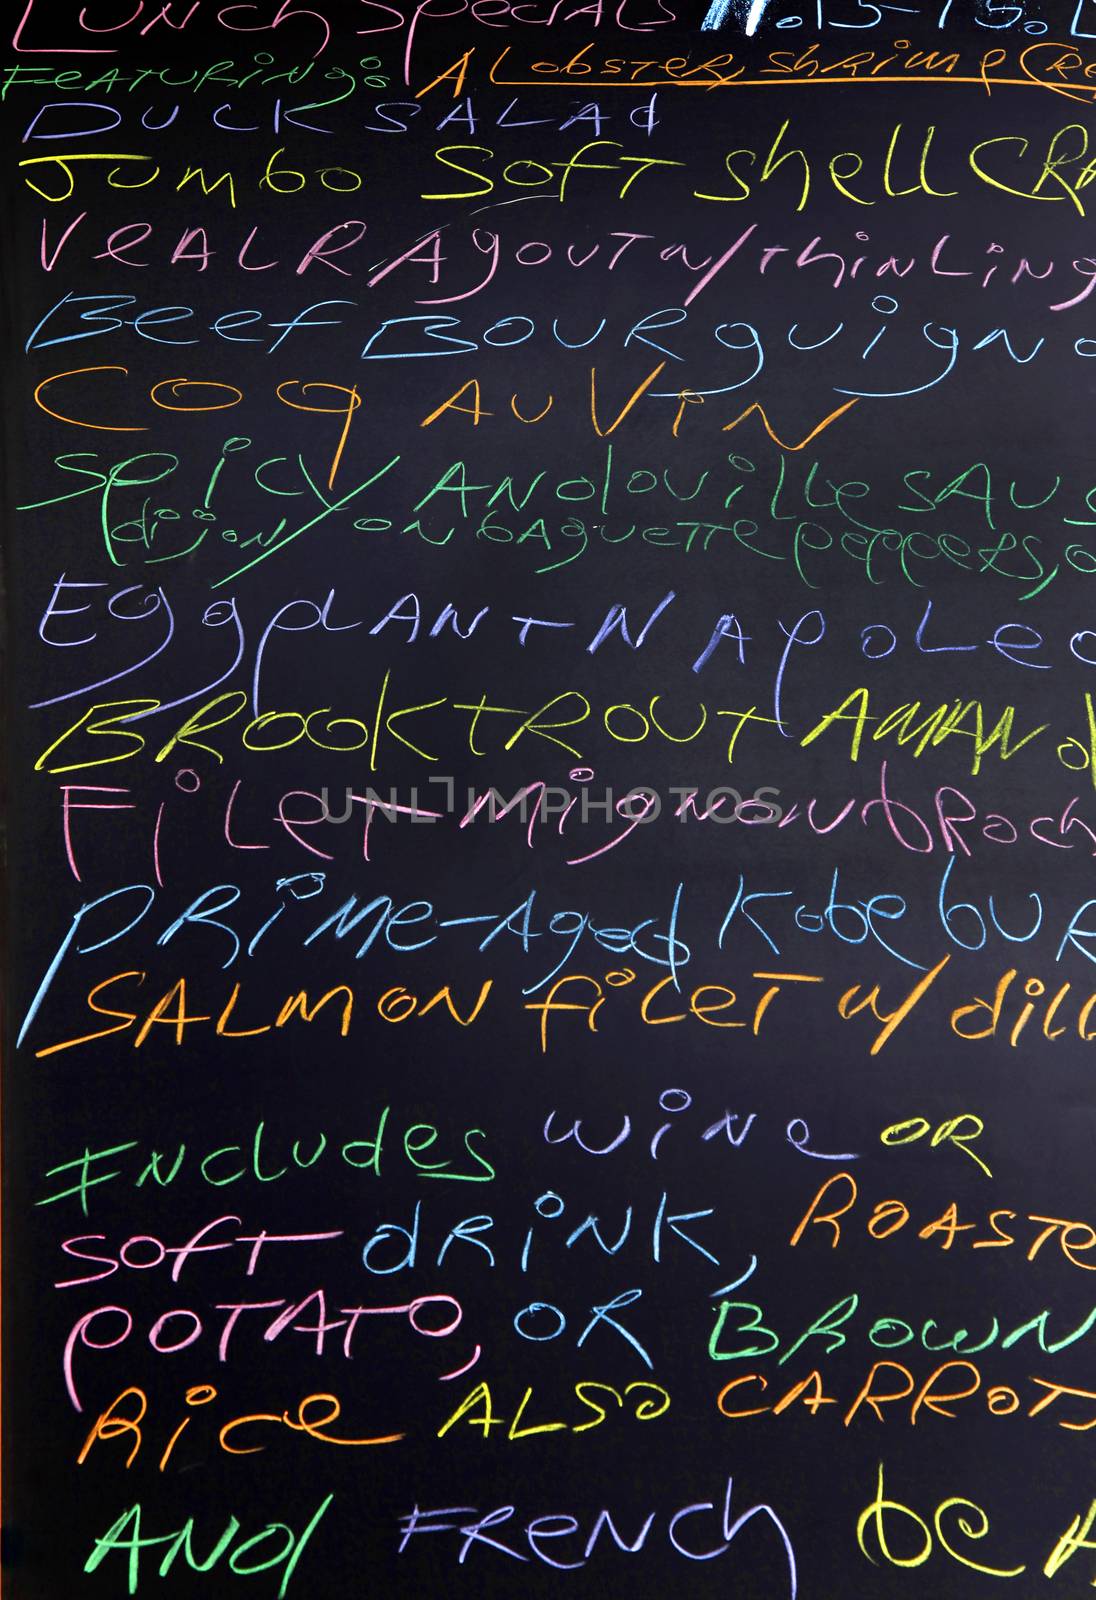 Lunch Specials 11.15-15.
Featuring: A Lobster, shrimp Cre
Duck Salad
Jumbo Soft Shell CRA
Veal Ragout w/ thinLing
Beef Bourguigno
Coq Au Vin
Spicy Andouille sau
dijon on baguette peppers, o
Eggplant Napoleo
Brook Trout Aman
Filet-mignon broch
Prime-Aged Kobe bur
Salmon filet w/ dill
Includes wine or
soft drink, Roaste
potato, or Brown
Rice Also Carrots
And French beA
UNLIMPHOTOS